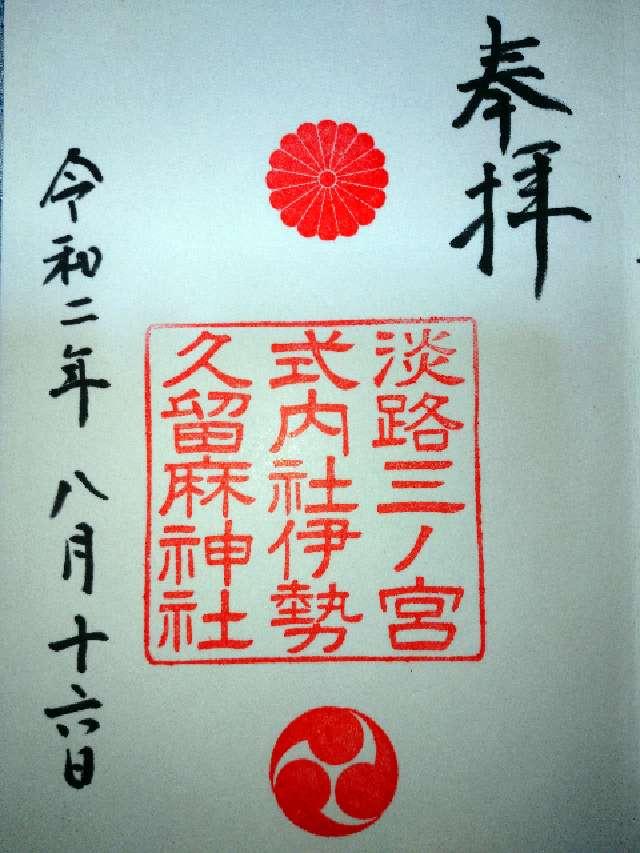 奉拝
淡路三ノ宮
式内社伊勢
久留麻神社
令和二年 八月十六日